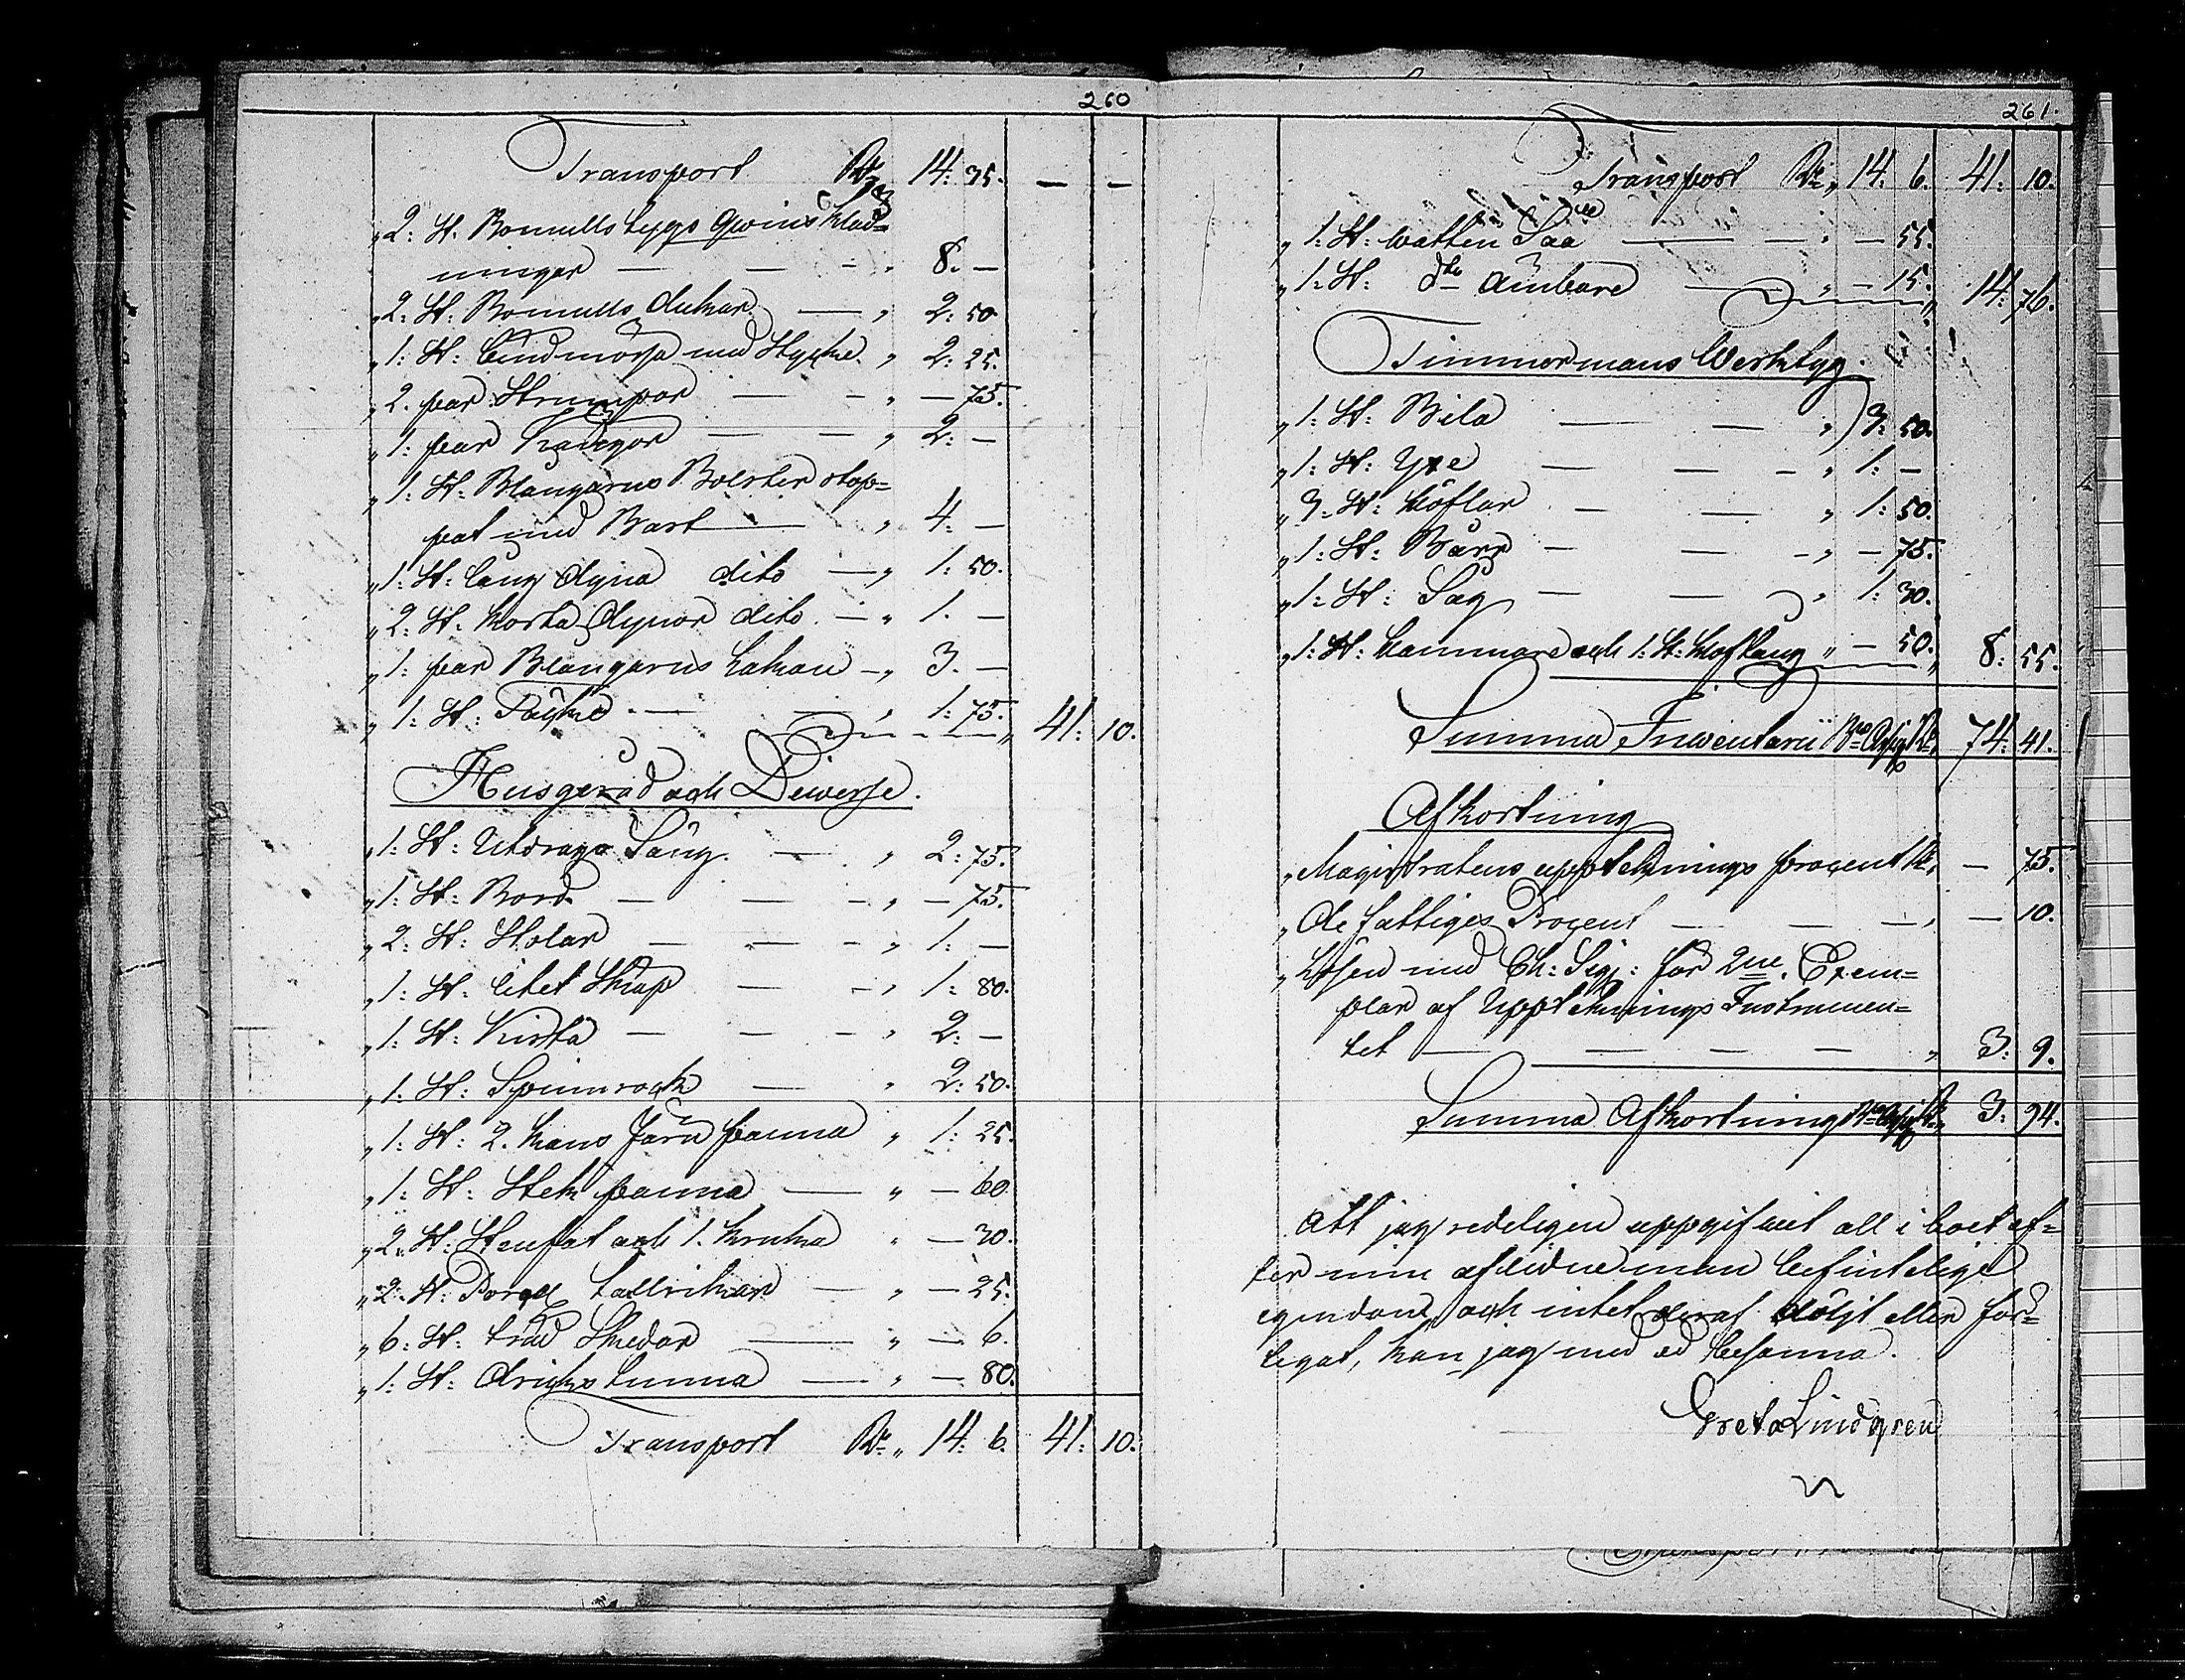 260
Transport Rr 14: 35. — —
„ 2: St. Bomulls tygs Qwins kläd=
ningar — — - „ 8. —
„ 2: St: Bomulls dukar — „ 2: 50
„ 1: St: Bindmössa med Stycke „ 2: 25.
„ 2. par Strumpor — - „ — 75.
„ 1: par Kängor — — „ 2: —
„ 1: St: Blangarns Bolster stop=
pat med Bast — „ 4. —
„ 1: St: lång dyna dito — „ 1: 50.
„ 2: St: korta dynor dito. — „ 1. —
„ 1: par Blangarns Lakan — „ 3. —
„ 1: St: Täcke - — — „ 1: 75. „ 41: 10.
Husgeråd och Diverse.
„ 1: St: Utdrags Säng. — „ 2: 75.
„ 1: St: Bord — — - „ — 75.
„ 2: St: Stolar — — - „ 1: —
„ 1: St: litet Skåp — - „ 1: 80.
„ 1: St: Kista — — - „ 2: —
„ 1: St: Spinnrock — „ 2: 50.
„ 1: St: 2. kans Järn panna „ 1: 25.
„ 1: St: Stek panna — „ — 60.
„ 2: St: Stenfat och 1. kruka „ — 30.
„ 2: St: Porcll tallrikar — „ — 25.
„ 6: St: träd Skedar — „ — 6.
„ 1: St: dricks tunna — „ — 80.
Transport Rr „ 14: 6. 41: 10.
261.
Transport Rr „ 14. 6. 41: 10.
„ 1: St: watten Såå — — „ — 55.
„ 1: St: dto ämbare — „ — 15. „ 14: 76.
Timmermans Werktyg.
„ 1: St: Bila — — „ 3: 50.
„ 1: St: Yxe — — - „ 1: —
„ 3: St: höflar - — „ 1: 50.
„ 1: St: Bårr — — - „ — 75.
„ 1: St: Såg — — „ 1: 30.
„ 1: St: hammare och 1: St: Hoftång „ — 50. „ 8: 55.
Summa Inventarii Bco Assig Rr „ 74: 41.
Afkortning
„ Magistratens uppteknings procent Rr „ — 75.
„ De fattiges Procent — — — „ — 10.
„ Lösen med Ch: Sig: för 2ne Exem=
plar af Uppteknings Instrumen=
tet — — — — „ 3: 9.
Summa Afkortning Bco Assig Rr „ 3: 94.
Att jag redeligen uppgifvit all i boet ef=
ter min aflidne man befintelige
egendom, och intet deraf döljt eller för=
tegat, kan jag med ed besanna.
Greta Lindgren